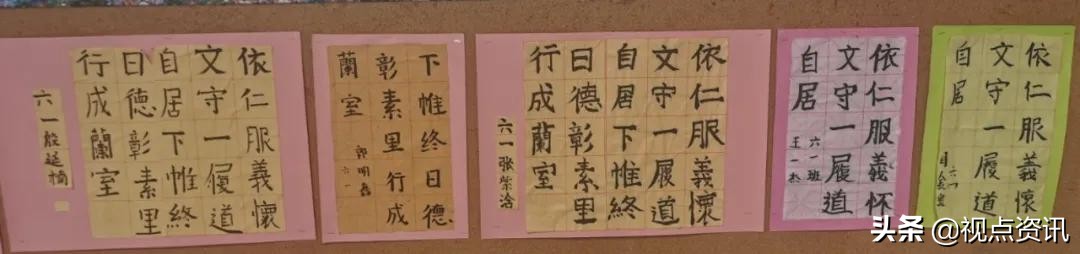 依仁服義懷
文守一履道
自居下帷終
日德彰素里
行成蘭室
六一殷延楠
下帷终日德
彰素里行成
蘭室
六一
依仁服義懷
文守一履道
自居下帷終
日德彰素里
行成蘭室
六一张紫
依仁服義怀
文守一履道
自居
六一班
王一杰
依仁服義懷
文守一履道
自居
头条 @视点资讯